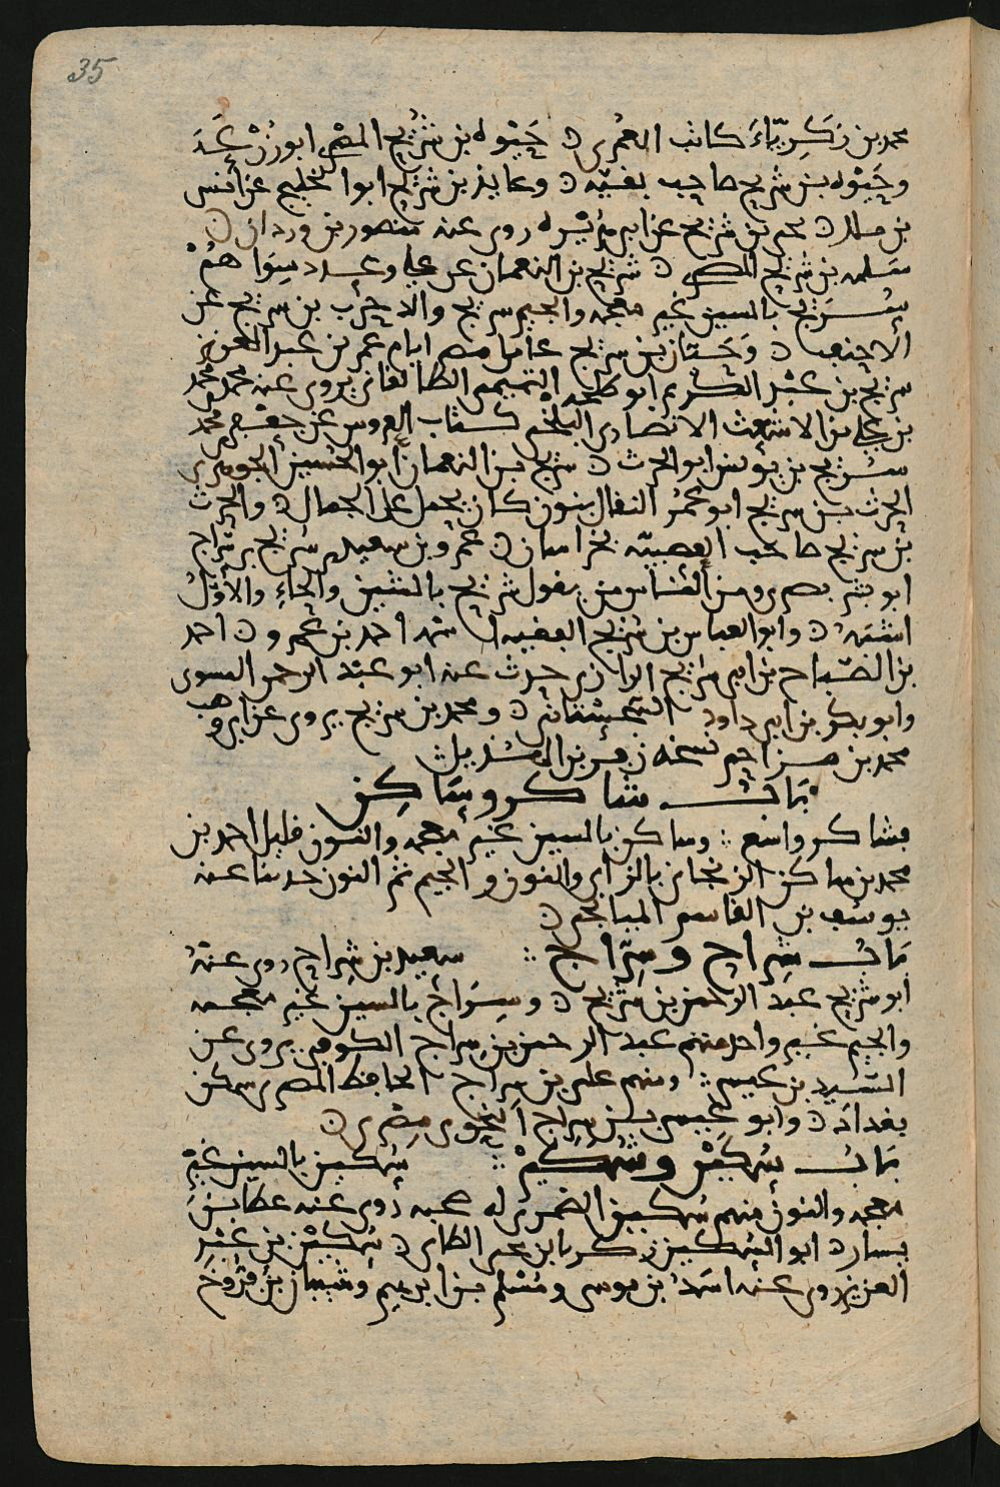 35
محمد بن زكرياء كاتب العمري ۞ حيوه بن شريح المصري ابو زرعه
وحيوه بن شريح صاحب بقيه ۞ وعايذ بن شريح ابو الخليج عن انس
بن ملك ۞ بن شريح عن ابي روى عنه منصور بن وردان ۞
سلمه بن شريح ۞ شريح بن النعمان عن علي سواهم
سريج بالسين غير معجمه والجيم سريج والا حرب بن سريج عن
الاحنف ۞ وحسان بن سريج عامل مصر ايام عمر بن عبد العزيز
سريج بن عبد الكريم ابو طلحه التميمي الطالقاني يروى عنه محمد بن محمد
بن الاشعث الانصاري كتاب العروس عن جعفر بن محمد
سريج بن يونس ابو الحرث ۞ سريج بن النعمان ابو الحسين الجوهري
الحرث بن سريج ابو عمر النقال بنون كان يحمل على الجمال ۞ والحرث
بن سريج صاحب العصبيه بخراسان ۞ عمرو بن سعيد بن سريج بن
ابو بشر بصرى ومن الناس من يقول شريح بالشين والحاء والاول
اشبه ۞ وابو العباس بن سريج الفقيه احمد بن عمر ۞ احمد
بن الصباح بن ابي سريج الرازي حدث عنه ابو عبد الرحمن النسوى
وابو بكر بن ابي داود السجستاني ۞ ومحمد بن سريج يروى عن ابي وهب
محمد بن مزاحم نسخه زفر بن الهذيل
باب شاكر وساكن
فشاكر واسع ؞ وساكن بالسين غير معجمه والنون قليل احمد بن
محمد بن ساكن الزنجاني بالزاي والنون والجيم ثم النون حدثنا عنه
يوسف بن القاسم الميانجي ۞
باب شراح وسراج ؞ سعيد بن شراح روى عنه
ابو شريح عبد الرحمن بن شريح ۞ وسراج بالسين غير معجمه
والجيم غير واحد منهم عبد الرحمن بن سراج الكوفي يروى عن
السيد بن عيسى ؞ ومنهم علي بن سراج الحافظ المصرى سكن
بغداد ۞ وابو عيسى بن سراج النحوى مصرى ۞
باب سكين وشكيم ؞ سكين بالسين غير
معجمه والنون منهم سكين الضمرى له صحبه روى عنه عطا بن
يسار ۞ ابو السكين زكريا بن يحيى الطاى ۞ سكين بن عبد
العزيز روى عنه اسد بن موسى ومسلم بن ابرهيم وشيبان بن فروخ